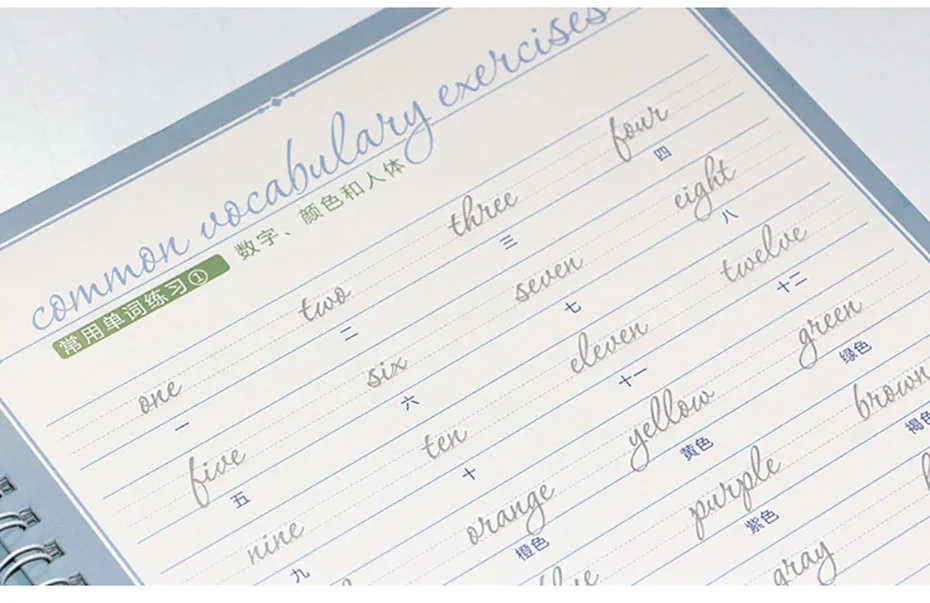 common vocabulary exercises
常用单词练习① 数字、颜色和人体
one two three four
一 二 三 四
five six seven eight
五 六 七 八
nine ten eleven twelve
九 十 十一 十二
orange yellow green
橙色 黄色 绿色
purple brown
紫色 褐色
gray